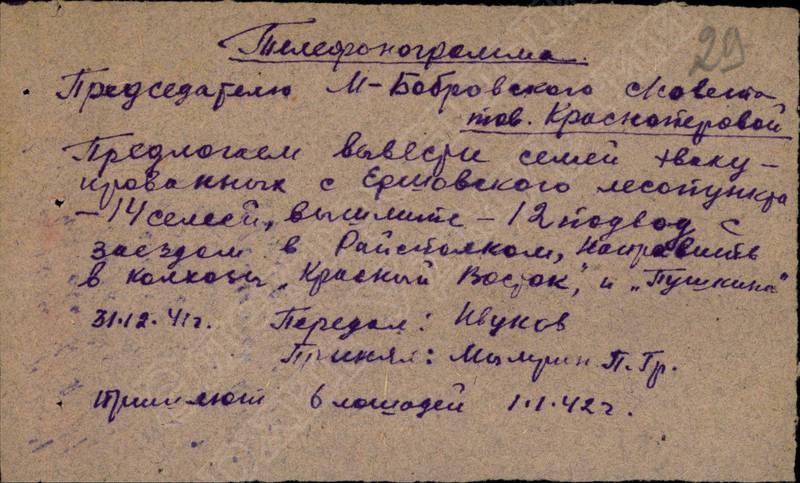 Телефонограмма.
29
Председателю М-Бобровского с/совета
тов. Красноперовой
Предлогаем вывести семей эваку-
ированных с Ершовского лесопункта
- 14 семей, вышлите - 12 подвод с
заездом в Райстолком, направить
в колхозы „Красный Восток", и „Пушкина"
31.12.41г. Передал: Ивуков
Принял: П.Гр.
пришлют 6 лошадей 1.1.42г.